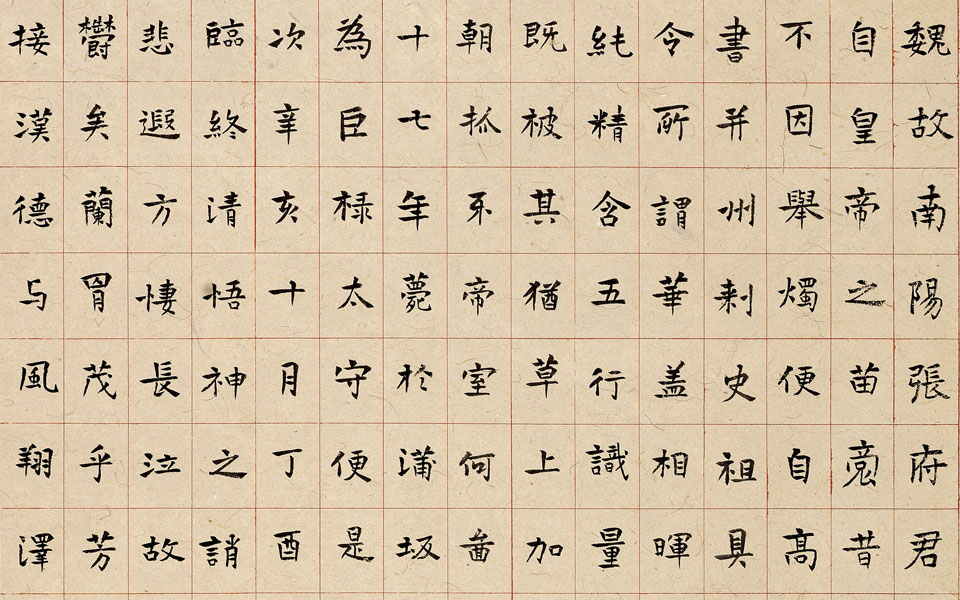 魏故南陽張府君
自皇帝之苗裔昔
不因舉燭便自高
書并州刺史祖具
令所謂華盖相暉
純精含五行識量
既被其猶草上加
朝抓不帝室何啚
十七年薨於蒲坂
為巨祿太守便是
次辛亥十月丁酉
臨終清悟神之誚
悲遐方悽長泣故
欝矣蘭胄茂乎芳
接漢德与風翔澤